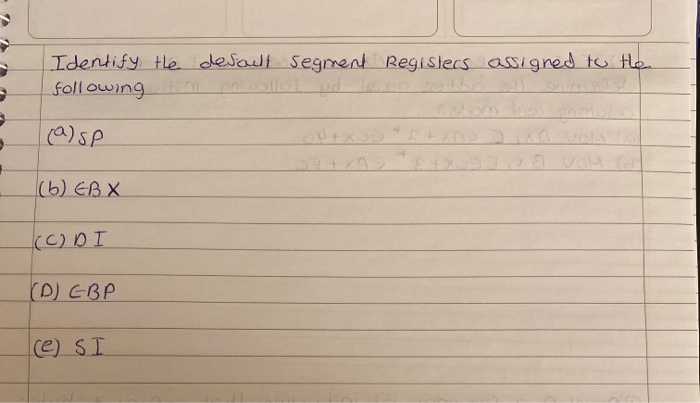 Identify the default Segment Registers assigned to the
following
(a) SP
(b) EBX
(C) DI
(D) EBP
(e) SI